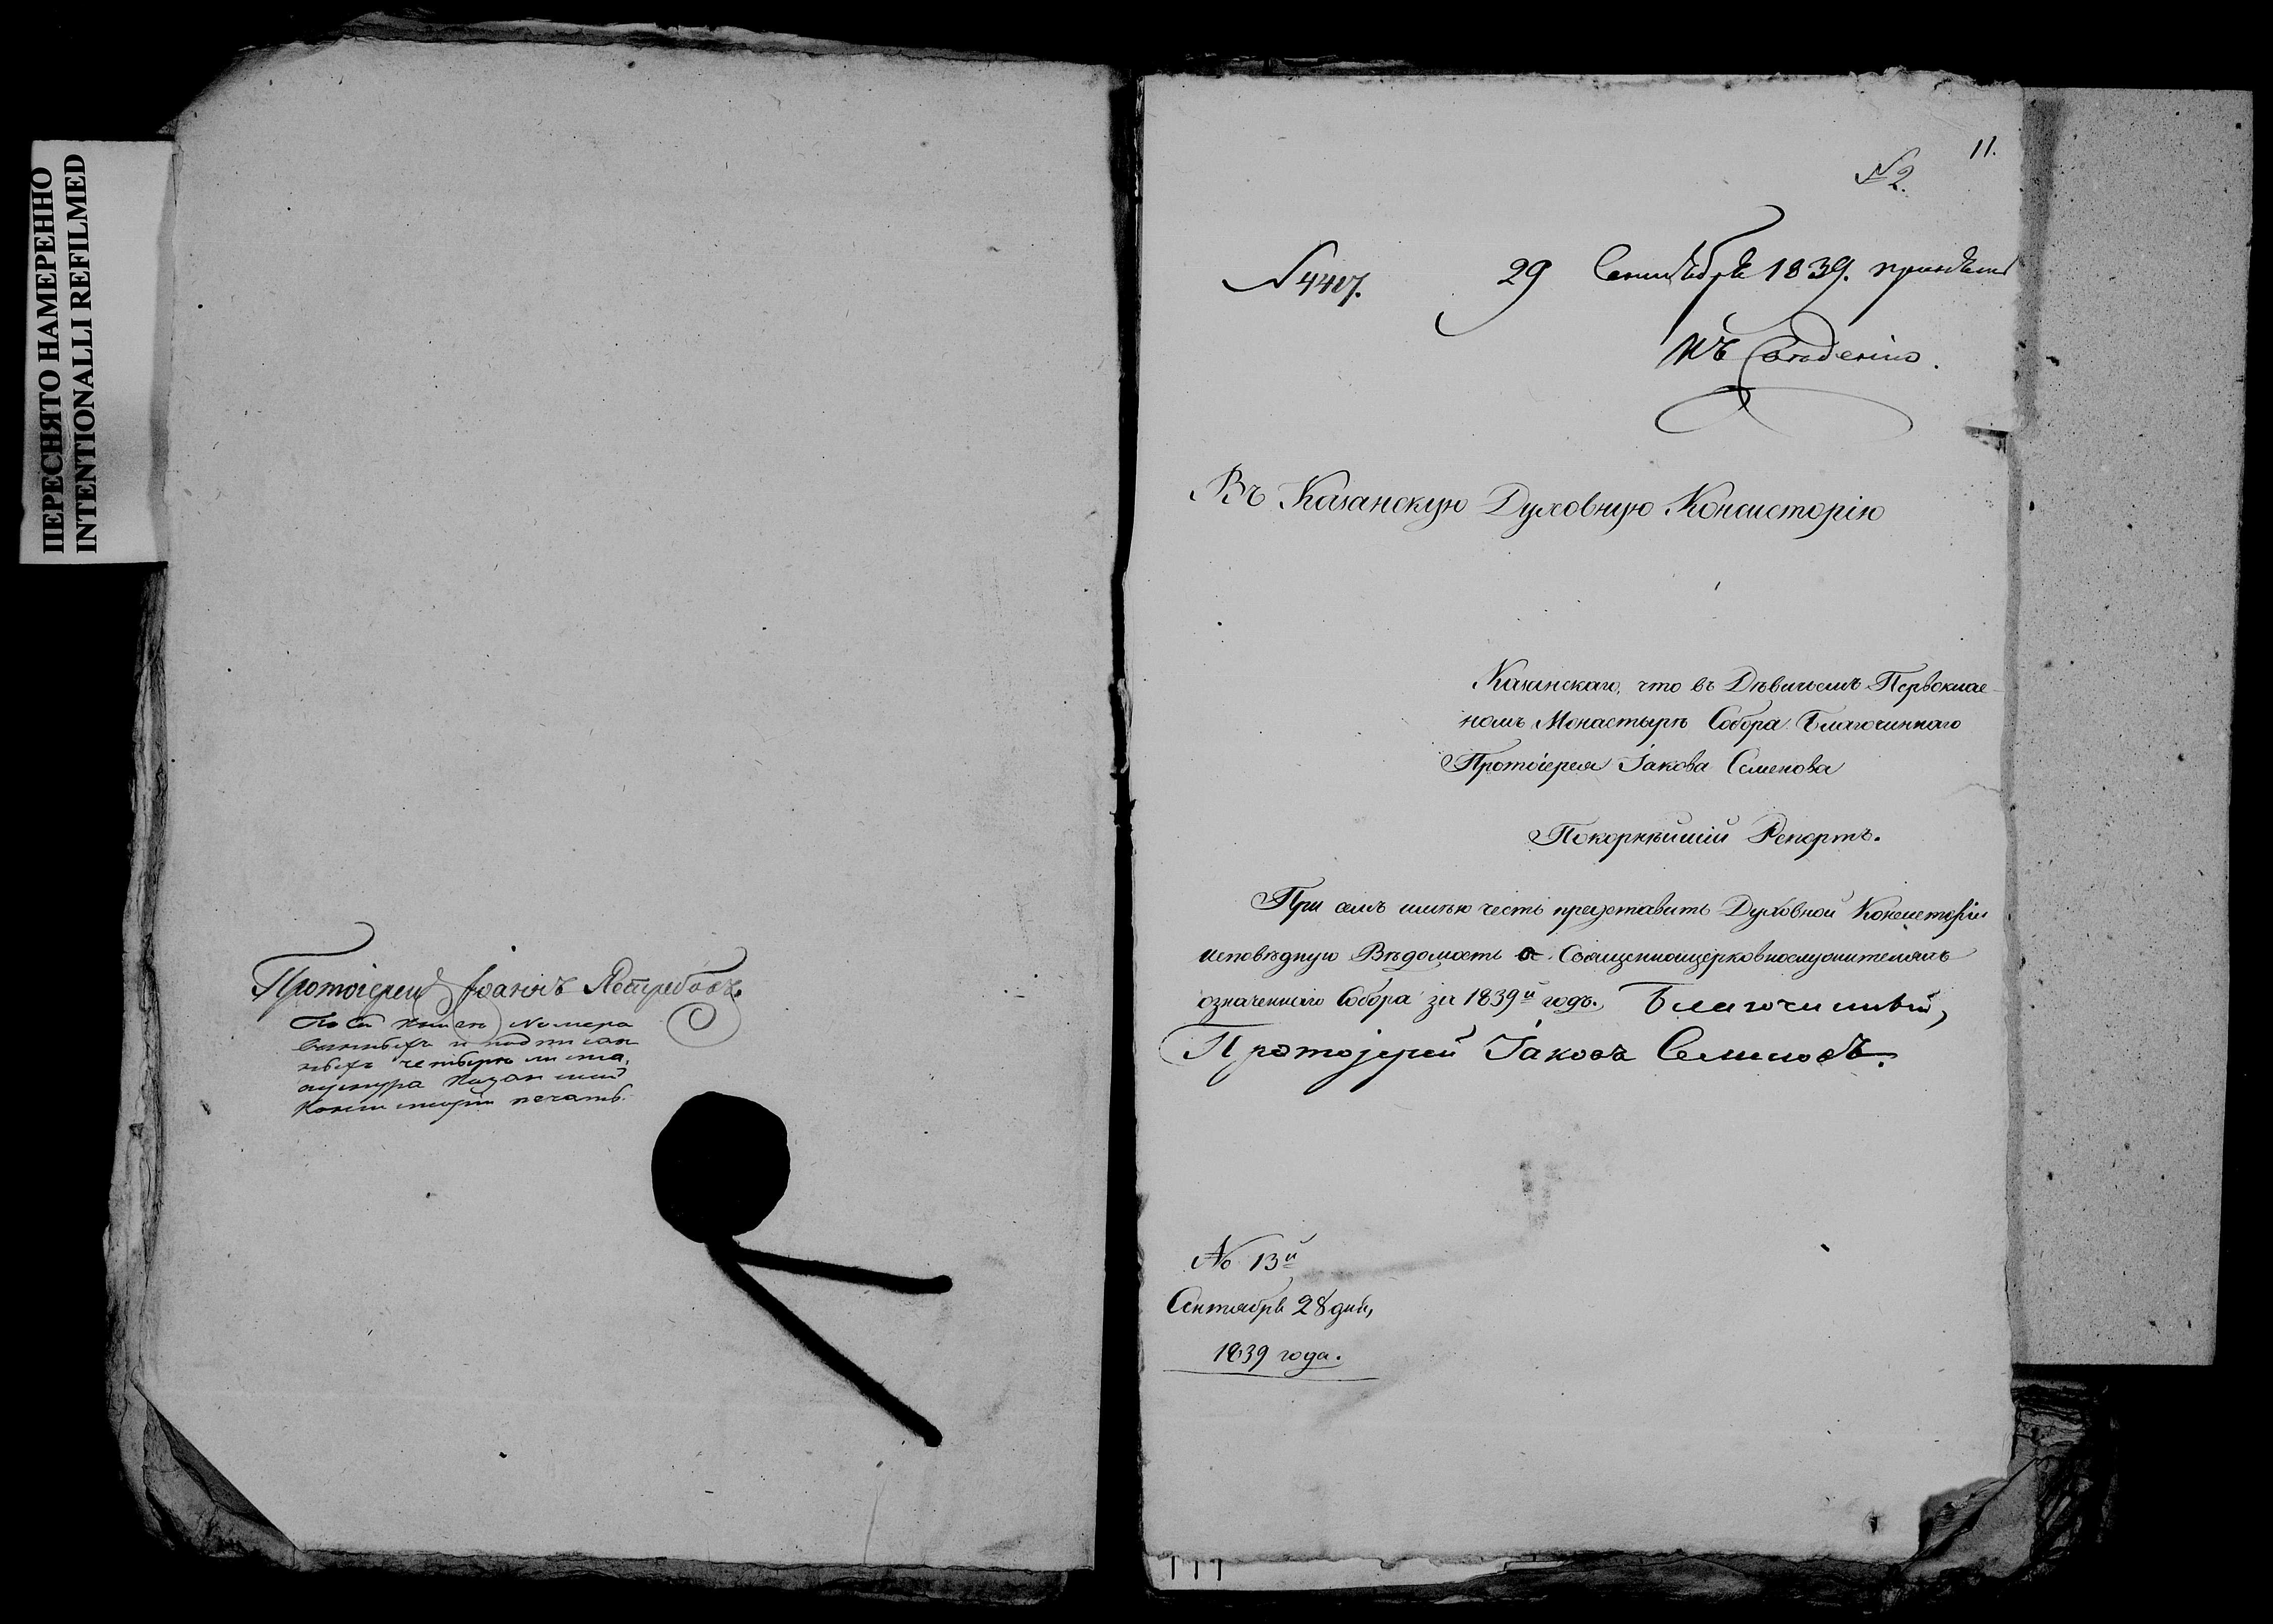 ПЕРЕСНЯТО НАМЕРЕННО
INTENTIONALLI REFILMED
Протоіерей Іоаннъ Ястребовъ.
По сей книгѣ Номеро
ванныхъ и подписан
ныхъ четыре листа,
Казанской
Консисторіи печать.
11.
№ 2.
№ 4417. 29 Сентября 1839.
къ Сведенію.
Въ Казанскую Духовную Консисторію
Казанскаго, что въ Дѣвичьемъ Первоклас-
номъ Монастырѣ Собора Благочиннаго
Протоіерея Іакова Семенова
Покорнѣйшій Репортъ.
При семъ имѣю честь представить Духовной Консисторіи
исповѣдную Вѣдомость о Священноцерковнослужителяхъ
означеннаго Собора за 1839й годъ. Благочинный,
Протоіерей Іаковъ Семеновъ.
No 13й
Сентября 28 дня,
1839 года.